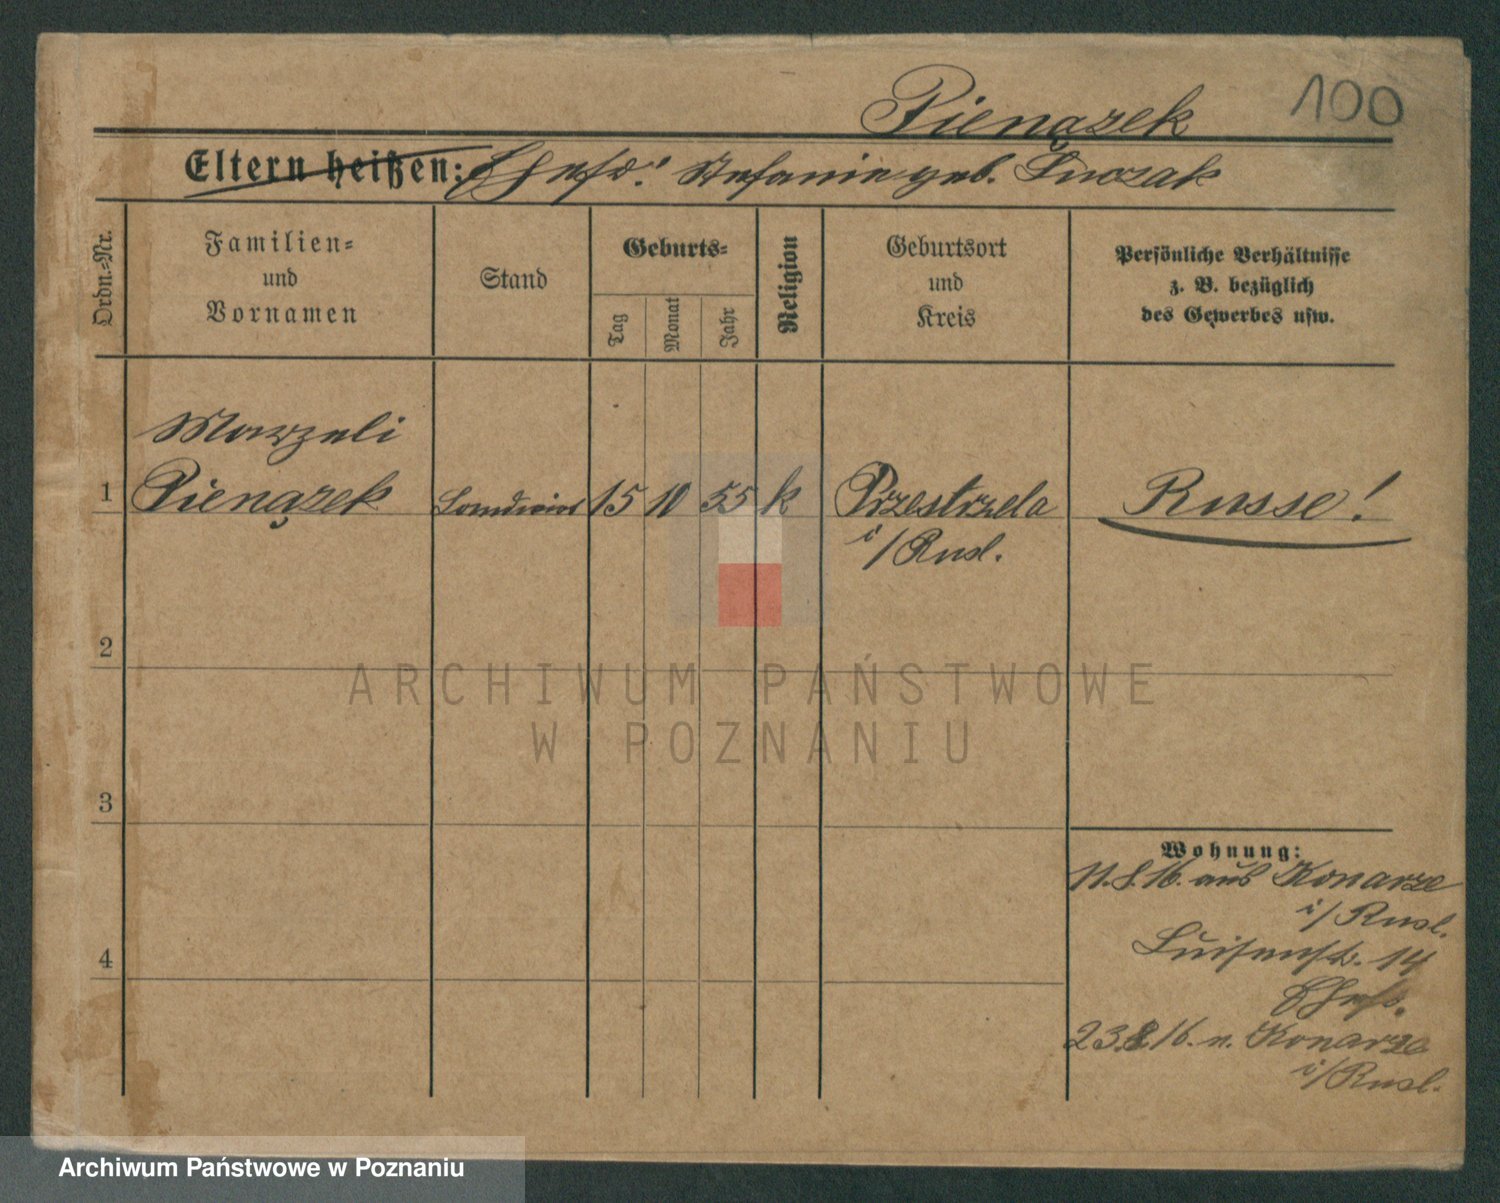 Pienązek
100
Eltern heißen: Ehefr. Stefanie geb. Luczak
Ordn.=Nr.
Familien=
und
Vornamen
Stand
Geburts=
Tag
Monat
Jahr
Religion
Geburtsort
und
Kreis
Persönliche Verhältnisse
z. B. bezüglich
des Gewerbes usw.
Marzeli
1 Pienązek Landwirt 15 10 55 k Przestrzela Russe!
i/Rusl.
2
3
4
Wohnung:
11.8.16. aus Konarze
i/Rusl.
Luisenstr. 14
23.8.16. n. Konarze
i/Rusl.
ARCHIWUM PAŃSTWOWE
W POZNANIU
Archiwum Państwowe w Poznaniu